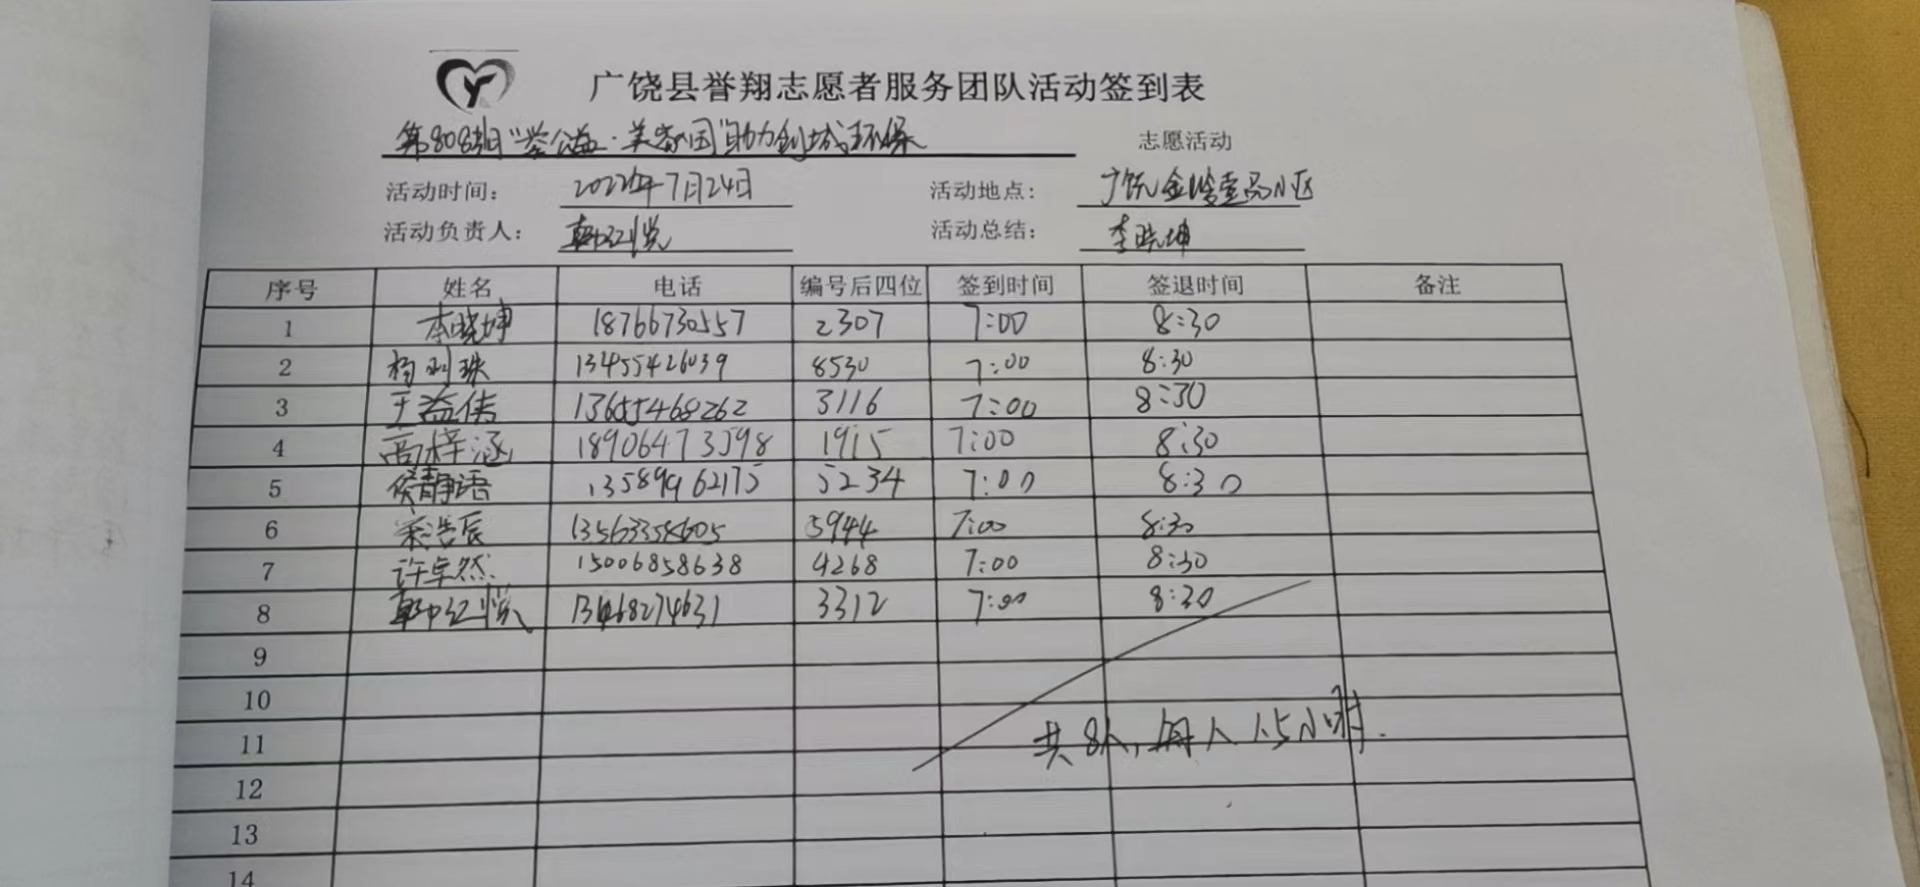 广饶县誉翔志愿者服务团队活动签到表
第808期"益·美家园"助力创城环保 志愿活动
活动时间： 2022年7月24日 活动地点： 广饶金 壹品小区
活动负责人： 韩红悦 活动总结： 李晓坤
序号 姓名 电话 编号后四位 签到时间 签退时间 备注
1 李晓坤 18766730557 2307 7:00 8:30
2 杨 珠 13455426039 8530 7:00 8:30
3 王益伟 13655468262 3116 7:00 8:30
4 高梓涵 18906473598 1915 7:00 8:30
5 侯静语 13589962175 5234 7:00 8:30
6 浩辰 13563358605 5944 7:00 8:30
7 许卓然 15006858638 4268 7:00 8:30
8 韩红悦 13468274631 3312 7:00 8:30
9
10
11 共8人，每人1.5小时.
12
13
14